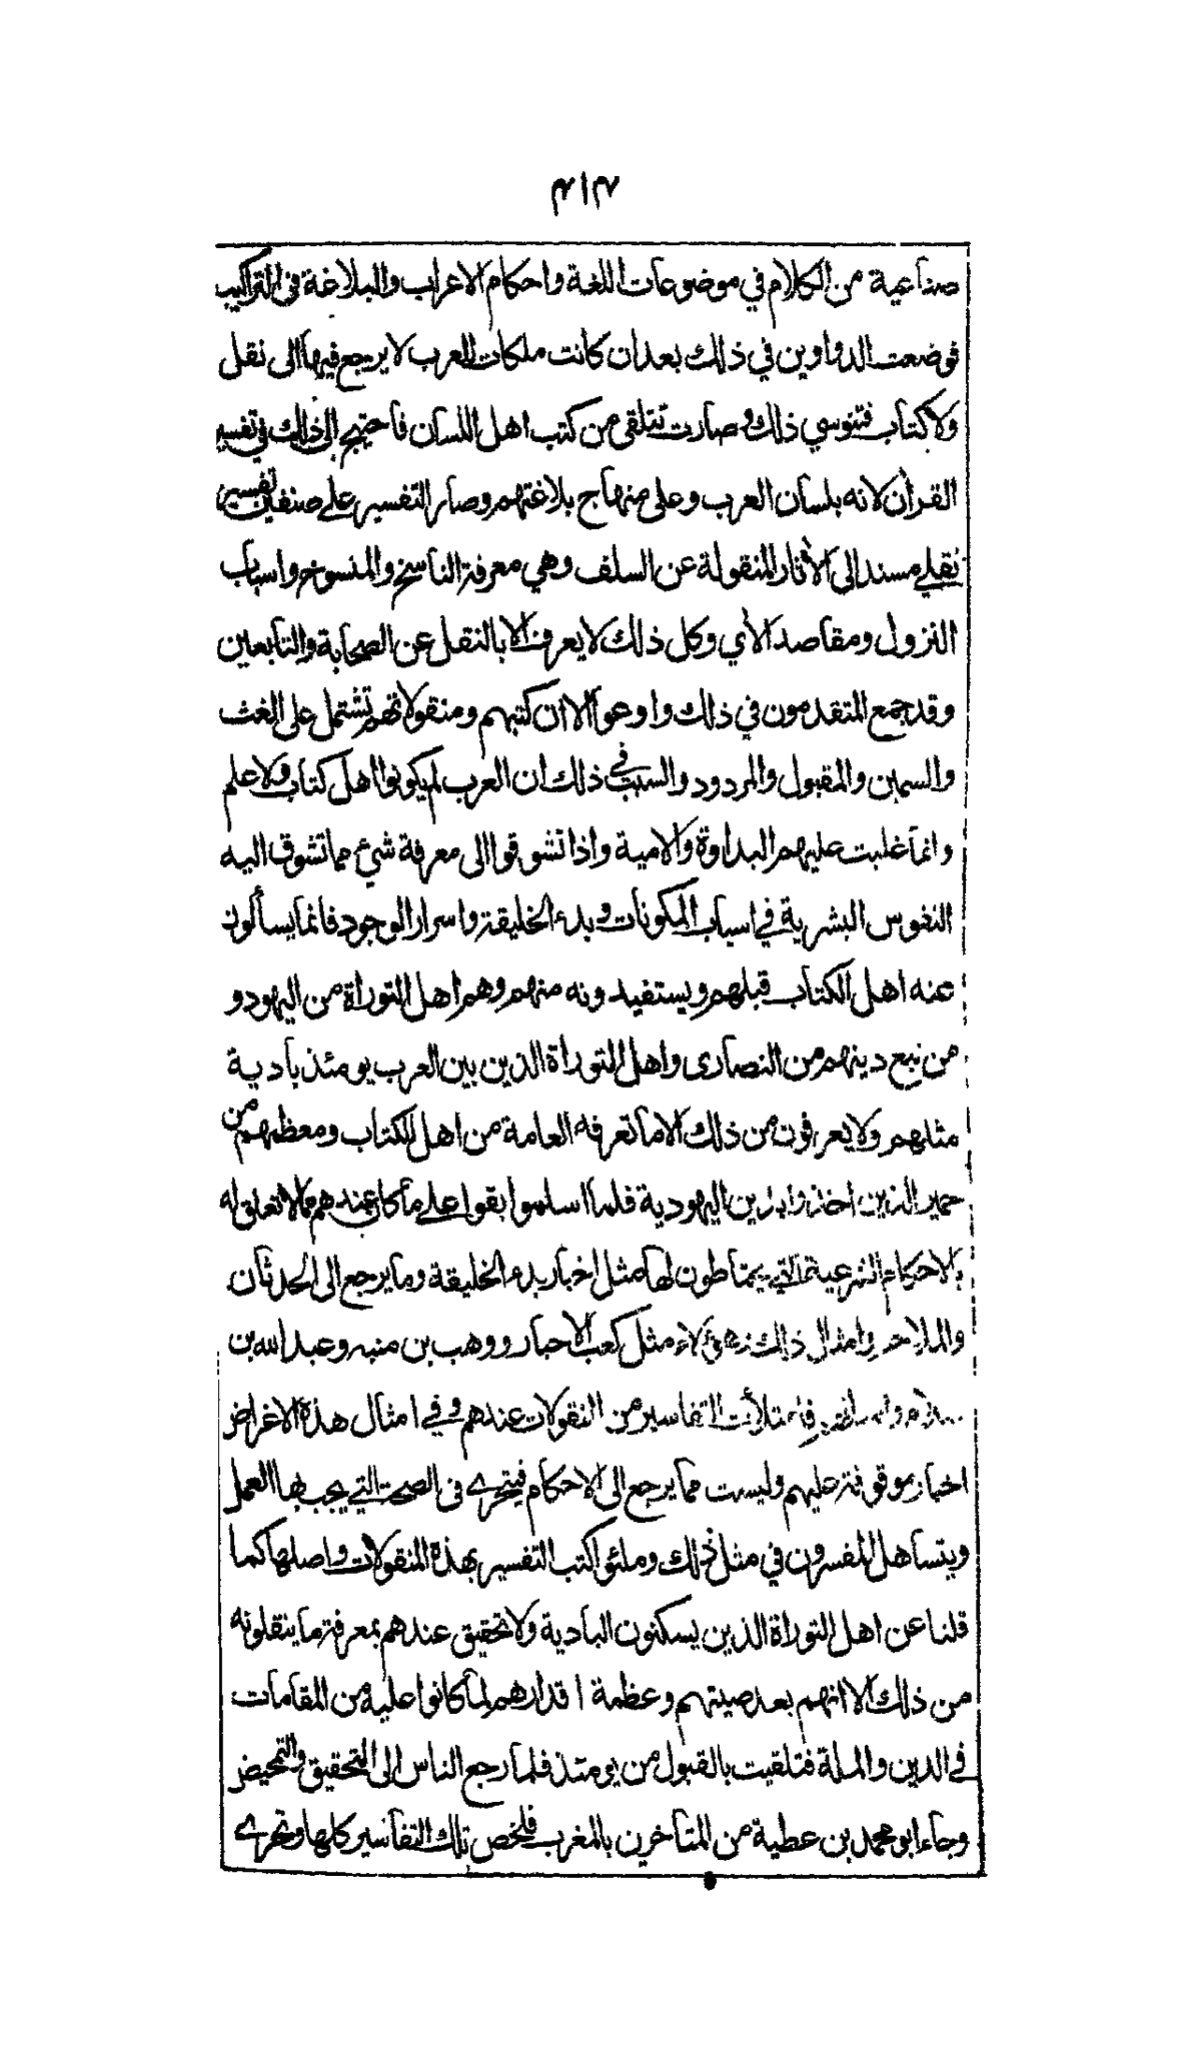 ٣١٣
صناعية من الكلام في موضوعات اللغة واحكام الاعراب والبلاغة في التراكيب
فوضعت الدواوين في ذلك بعد ان كانت ملكات للعرب لا يرجع فيها الى نقل
ولا كتاب فتنوسي ذلك وصارت تتلقى من كتب اهل اللسان فاحتيج الى ذلك في تفسير
القرأن لانه بلسان العرب وعلى منهاج بلاغتهم وصار التفسير على صنفين تفسير
نقلي مسند الى الأثار المنقولة عن السلف وهي معرفة الناسخ والمنسوخ واسباب
النزول ومقاصد الأي وكل ذلك لا يعرف الا بالنقل عن الصحابة والتابعين
وقد جمع المتقدمون في ذلك واوعوا الا ان كتبهم ومنقولاتهم تشتمل على الغث
والسمين والمقبول والمردود والسبب في ذلك ان العرب لم يكونوا اهل كتاب ولا علم
وانما غلبت عليهم البداوة والامية واذا تشوقوا الى معرفة شيء مما تشوق اليه
النفوس البشرية في اسباب المكونات وبدء الخليقة واسرار الوجود فانما يسألون
عنه اهل الكتاب قبلهم ويستفيدونه منهم وهم اهل التوراة من اليهود و
من تبع دينهم من النصارى واهل التوراة الذين بين العرب يومئذ بادية
مثلهم ولا يعرفون من ذلك الا ما تعرفه العامة من اهل الكتاب ومعظمهم من
حمير الذين اخذوا بدين اليهودية فلما اسلموا بقوا على ما كان عندهم مما لا تعلق له
بالاحكام الشرعية التي يحتاطون لها مثل اخبار بدء الخليقة وما يرجع الى الحدثان
والملاحم وامثال ذلك وهؤلاء مثل كعب الاحبار ووهب بن منبه وعبد الله بن
سلام وامثالهم فامتلأت التفاسير من النقولات عندهم وفي امثال هذه الاغراض
اخبار موقوفة عليهم وليست مما يرجع الى الاحكام فيتحرى في الصحة التي يجب بها العمل
ويتساهل المفسرون في مثل ذلك وملئوا كتب التفسير بهذه المنقولات واصلها كما
قلنا عن اهل التوراة الذين يسكنون البادية ولا تحقيق عندهم بمعرفة ما ينقلونه
من ذلك الا انهم بعد صيتهم وعظمة اقدارهم لما كانوا عليه من المقامات
في الدين والملة فتلقيت بالقبول من يومئذ فلما رجع الناس الى التحقيق والتمحيض
وجاء ابو محمد بن عطية من المتاخرين بالمغرب فلخص تلك التفاسير كلها وتحرى